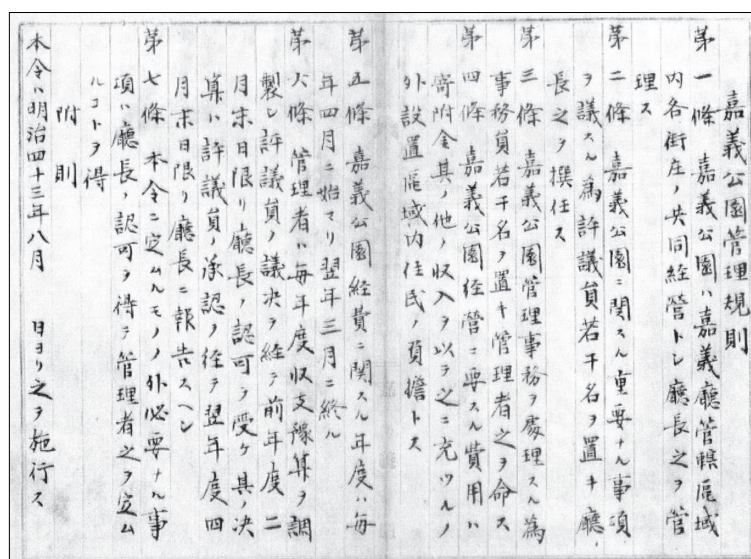 嘉義公園管理規則
第一條　嘉義公園ハ嘉義廳管轄區域
内各街庄ノ共同経營トシ廳長之ヲ管
理ス
第二條　嘉義公園ニ関スル重要ナル事項
ヲ議スル為評議員若干名ヲ置キ廳
長之ヲ撰任ス
第三條　嘉義公園管理事務ヲ處理スル為
事務員若干名ヲ置キ管理者之ヲ命ス
第四條　嘉義公園経營ニ要スル費用ハ
寄附金其ノ他ノ収入ヲ以テ之ニ充ツルノ
外設置區域内住民ノ負擔トス
第五條　嘉義公園経費ニ関スル年度ハ毎
年四月ニ始マリ翌年三月ニ終ル
第六條　管理者ハ毎年度収支豫算ヲ調
製シ評議員ノ議决ヲ経テ前年度二
月末日限リ廳長ノ認可ヲ受ケ其ノ决
算ハ評議員ノ承認ヲ経テ翌年度四
月末日限リ廳長ニ報告スヘシ
第七條　本令ニ定ムルモノノ外必要ナル事
項ハ廳長ノ認可ヲ得テ管理者之ヲ定ム
ルコトヲ得
附則
本令ハ明治四十三年八月　　日ヨリ之ヲ施行ス